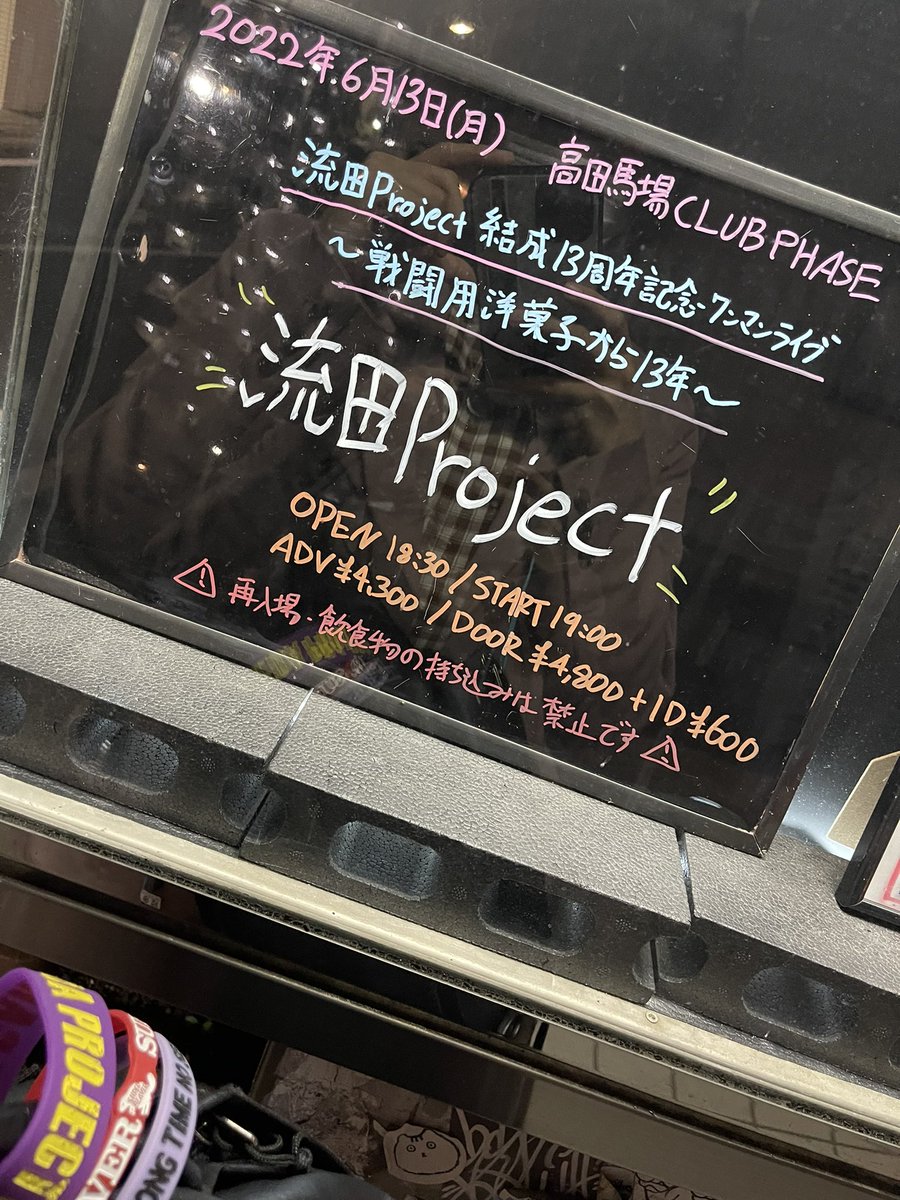 2022年6月13日(月) 高田馬場CLUB PHASE
流田Project 結成13周年記念ワンマンライブ
～戦闘用洋菓子から13年～
流田Project
OPEN 18:30 / START 19:00
ADV ¥4.300 / DOOR ¥4,800 + 1D ¥600
⚠ 再入場・飲食物の持ち込みは禁止です ⚠
A PROJECT
VER
ONG TIME